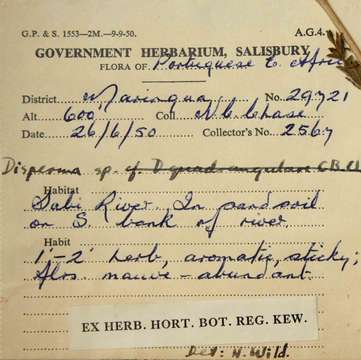 G.P. & S. 1553—2M.—9-9-50. A.G.4.
GOVERNMENT HERBARIUM, SALISBURY
FLORA OF Portuguese E. Afric
District Maringua No. 29721
Alt 600 Coll N.C. Chase
Date 26/6/50 Collector's No. 2567
Disperma sp. cf. D quadrangulare C.B.Cl
Habitat
Sabi River. In sand soil
on S. bank of river.
Habit
1'-2' herb, aromatic, sticky;
flrs mauve - abundant.
EX HERB. HORT. BOT. REG. KEW.
Det: H. Wild.